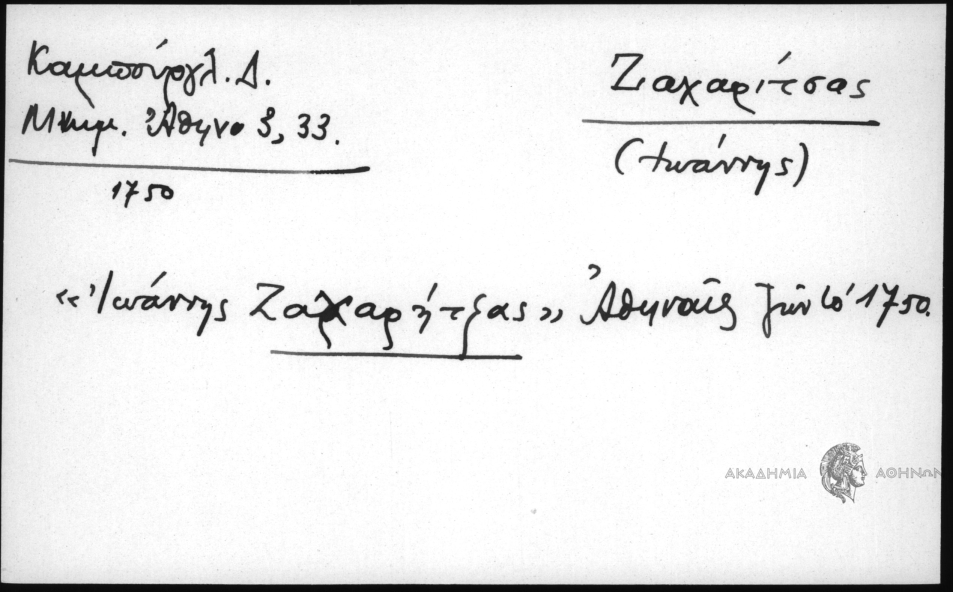 Καμπούρογλ. Δ.
Μνημ. Ἀθην. 3, 33.
1750
Ζαχαρίτσας
(Ιωάννης)
«Ἰωάννης Ζαχαρήτζας» Ἀθηναῖος ζῶν τό 1750.
ΑΚΑΔΗΜΙΑ ΑΘΗΝΩΝ